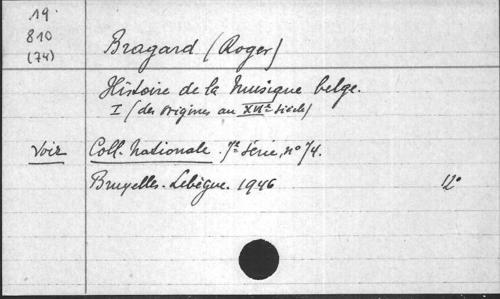 19
810
(74)
Bragard (Roger)
Histoire de la Musique belge.
I (des origines au XVIIe siècle)
Voir Coll. Nationale. 7e Série, n° 74.
Bruxelles. Lebègue. 1946 12°